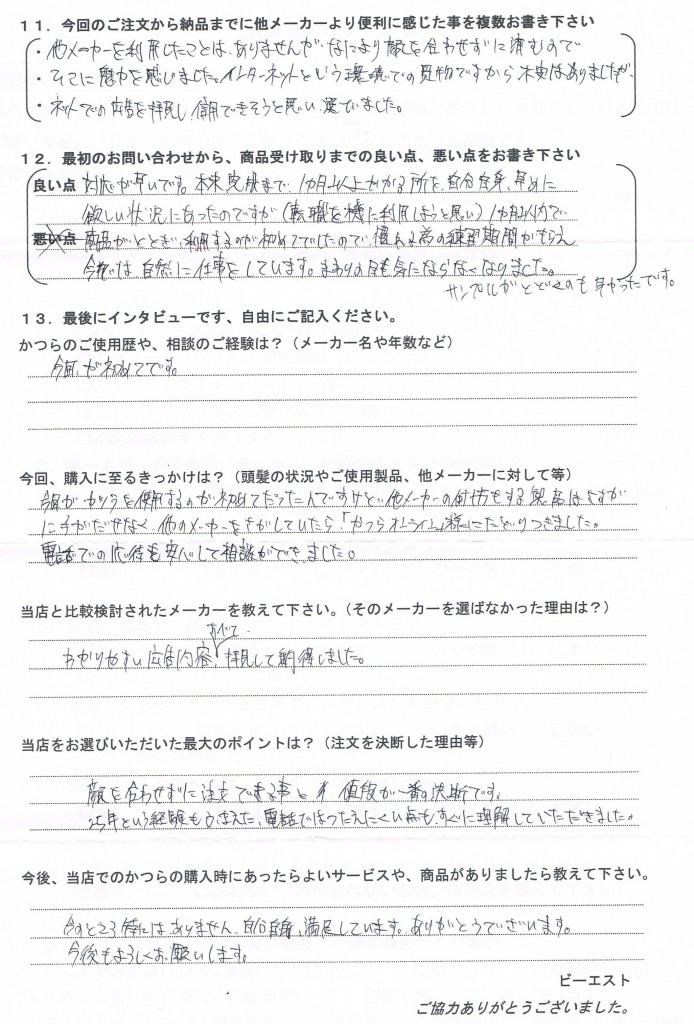 11．今回のご注文から納品までに他メーカーより便利に感じた事を複数お書き下さい
・他メーカーを利用したことは、ありませんがなにより顔を合わせずに済むので
・そこに魅力を感じました。インターネットという環境での買物ですから不安はありましたが、
・ネットでの広告を拝見し信用できそうと思い、選でいました。
12．最初のお問い合わせから、商品受け取りまでの良い点、悪い点をお書き下さい
良い点 対応が早いです。本来完成まで、1カ月以上かかる所を、自分自身、早めに
欲しい状況にあったのですが（転職を機に利用しようと思い）1カ月以内で
悪い点 商品がとどき、利用するのが初めてでしたので、慣れる為の練習期間がもらえ
今では、自然に仕事をしています。まわりの目も気にならなくなりました。
サンプルがとどくのも早かったです。
13．最後にインタビューです、自由にご記入ください。
かつらのご使用歴や、相談のご経験は？（メーカー名や年数など）
今回、が初めてです。
今回、購入に至るきっかけは？（頭髪の状況やご使用製品、他メーカーに対して等）
今回がカツラを使用するのが初めてだったんですけど、他メーカーの何十万もする製品はさすが
に手がだせなく、他のメーカーをさがしていたら、「かつらオンライン」様にたどりつきました。
電話での応待も安心して相談ができました。
当店と比較検討されたメーカーを教えて下さい。（そのメーカーを選ばなかった理由は？）
わかりやすい広告内容、すべて拝見して納得しました。
当店をお選びいただいた最大のポイントは？（注文を決断した理由等）
顔を合わせずに注文できる事と 値段が一番の決断です。
25年という経験もうきえた、電話ではつたえにくい点も、すぐに理解していただきました。
今後、当店でのかつらの購入時にあったらよいサービスや、商品がありましたら教えて下さい。
今のところ特にはありません、自分自身、満足しています。ありがとうございます。
今後もよろしくお願いします。
ビーエスト
ご協力ありがとうございました。